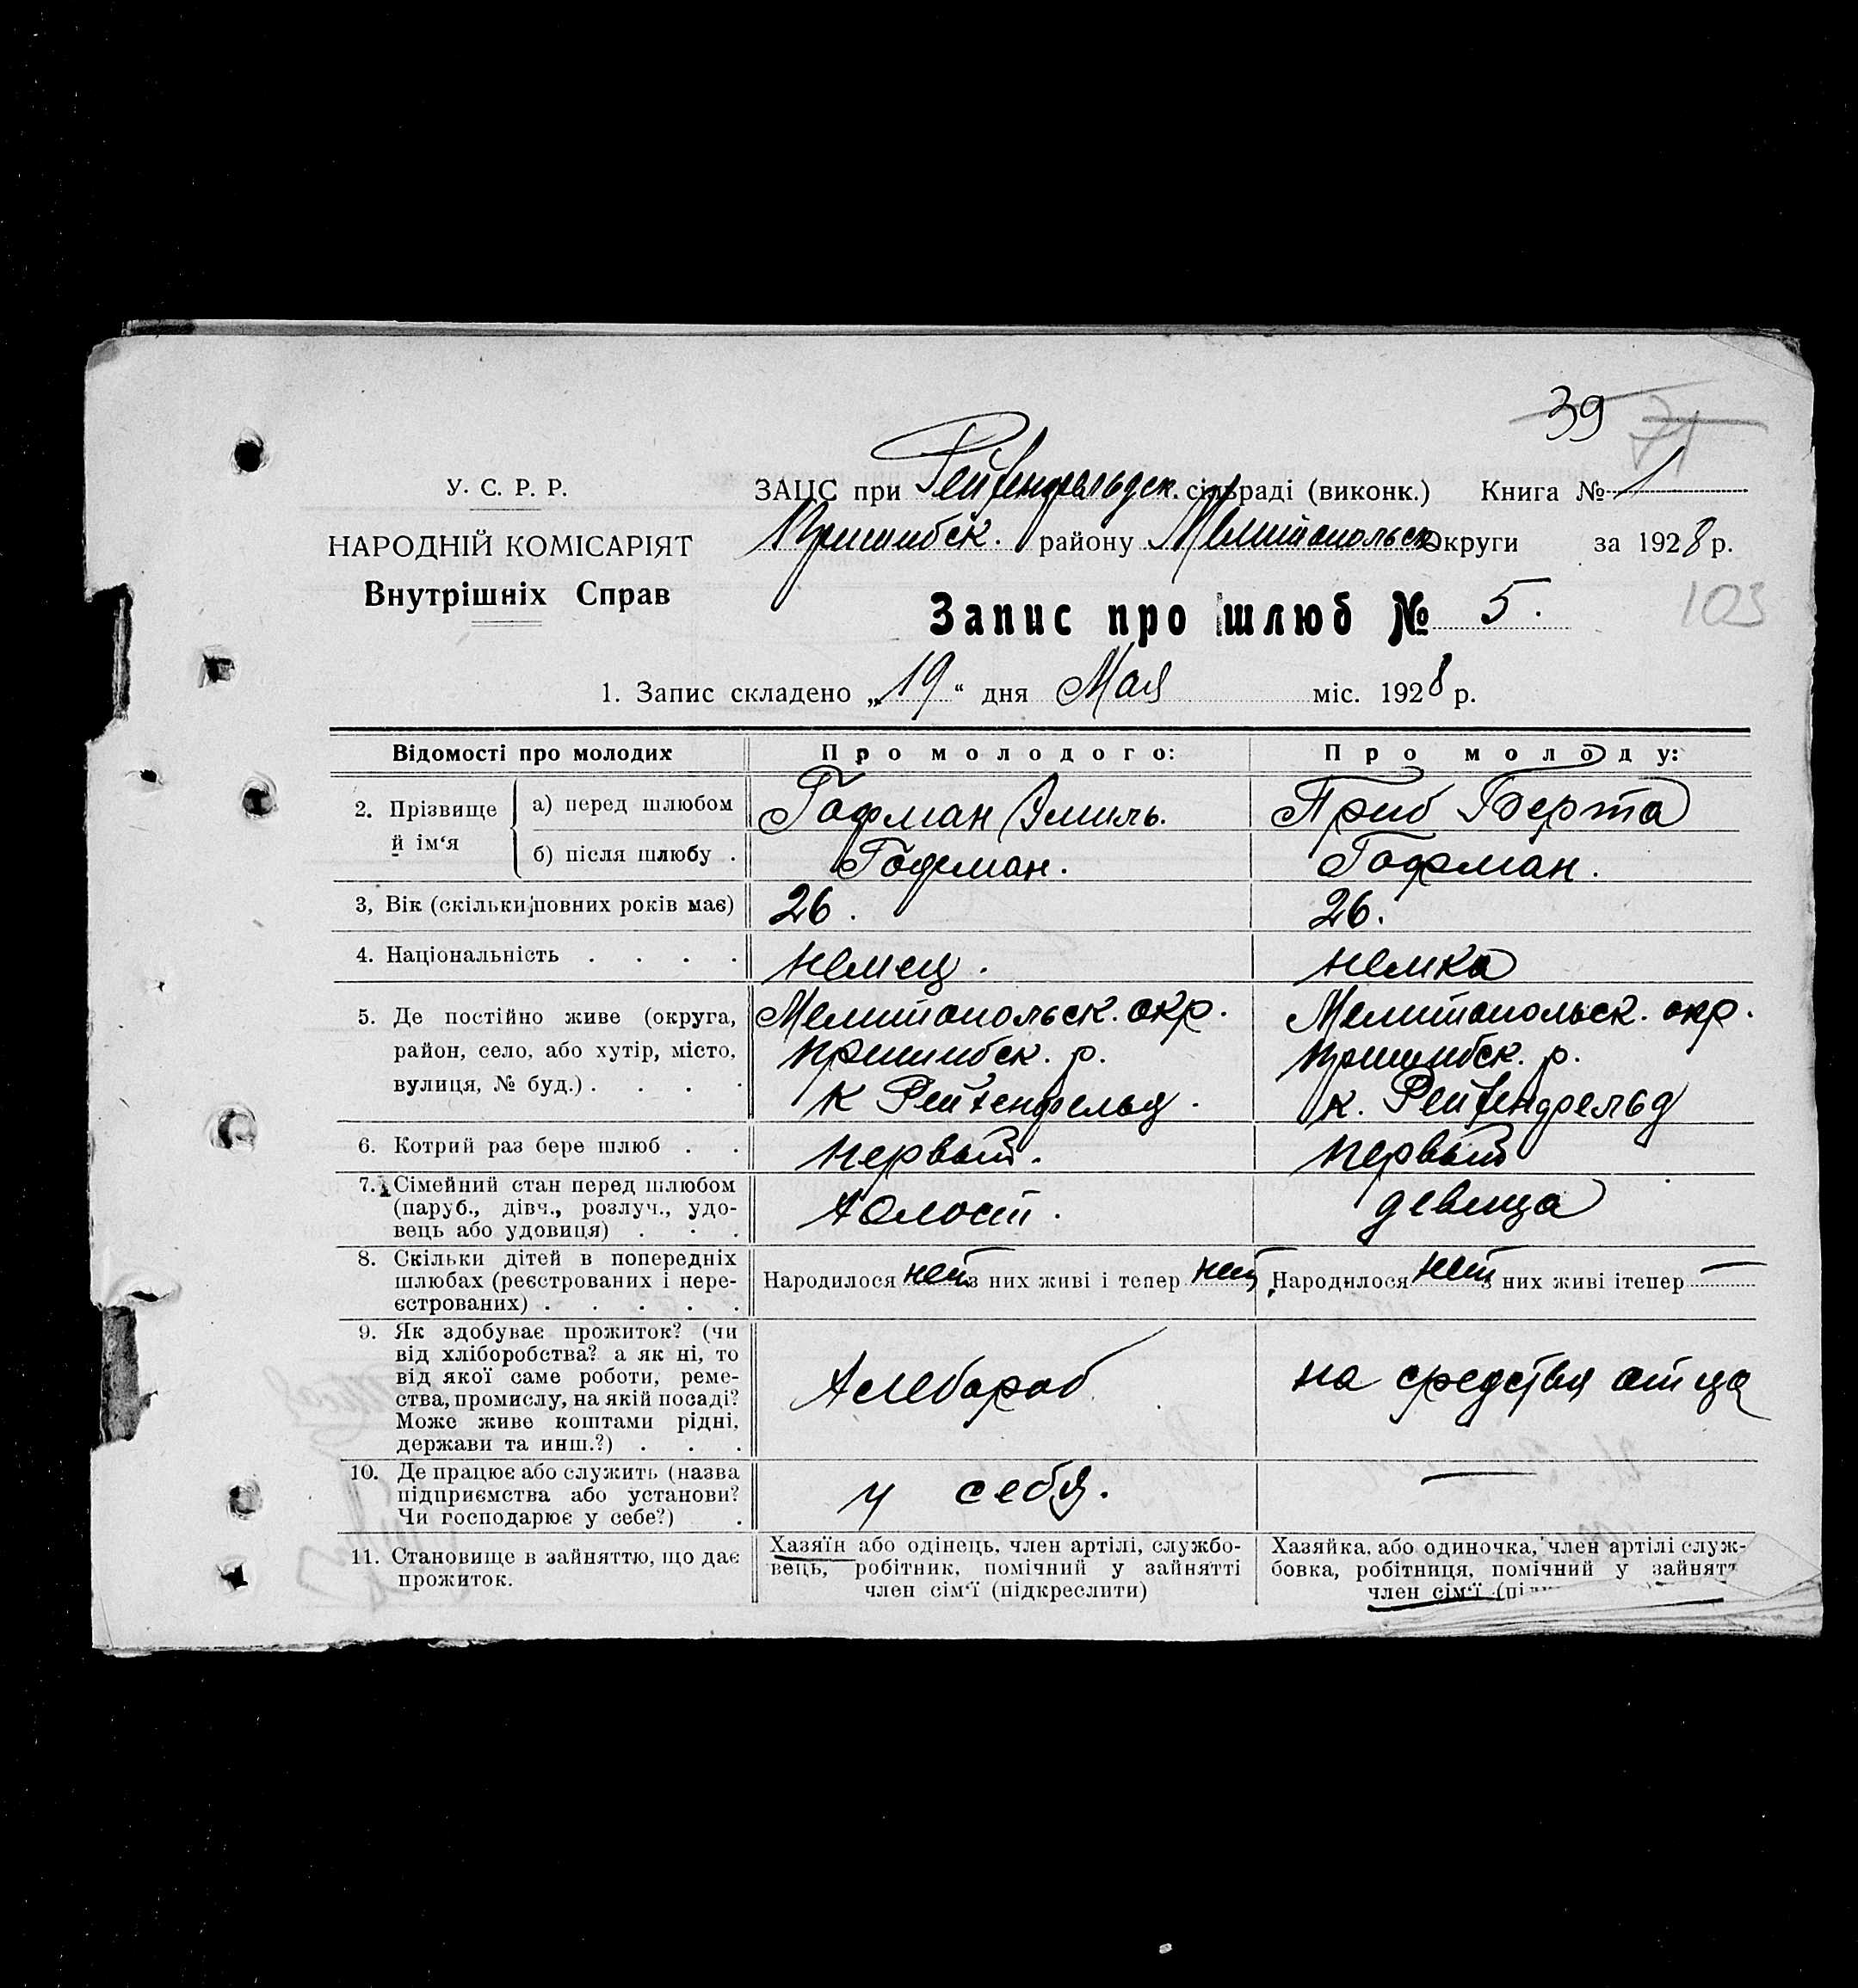 39 71
У. С. Р. Р.
НАРОДНІЙ КОМІСАРІЯТ
Внутрішніх Справ
ЗАЦС при Рейхенфельдск. сільраді (виконк.) Книга № 1
Пришибск. району Мелитопольск. Округи за 1928 р.
Запис про шлюб № 5.
103
1. Запис складено „19“ дня Мая міс. 1928 р.
Відомості про молодих
Про молодого:
Про молоду:
2. Прізвище й ім‘я
а) перед шлюбом
Гофман Эмиль.
Приб Берта
б) після шлюбу .
Гофман.
Гофман.
3, Вік (скільки повних років має)
26.
26.
4. Національність . . . .
немец.
немка
5. Де постійно живе (округа,
район, село, або хутір, місто,
вулиця, № буд.) . . . .
Мелитопольск. окр.
Пришибск. р.
к Рейхенфельд.
Мелитопольск. окр.
Пришибск. р.
к. Рейхенфельд
6. Котрий раз бере шлюб . .
первый.
первый
7. Сімейний стан перед шлюбом
(паруб., дівч., розлуч., удо-
вець або удовиця) . . .
холост.
девица
8. Скільки дітей в попередніх
шлюбах (реєстрованих і нере-
єстрованих) . . . . .
Народилося нет з них живі і тепер нет
Народилося нет з них живі ітепер —
9. Як здобуває прожиток? (чи
від хліборобства? а як ні, то
від якої саме роботи, реме-
ства, промислу, на якій посаді?
Може живе коштами рідні,
держави та инш.?) . . .
хлебороб
на средства отца
10. Де працює або служить (назва
підприємства або установи?
Чи господарює у себе?) .
у себя.
—
11. Становище в зайняттю, що дає
прожиток.
Хазяїн або одінець, член артілі, службо-
вець, робітник, помічний у зайнятті
член сім‘ї (підкреслити)
Хазяйка, або одиночка, член артілі служ-
бовка, робітниця, помічний у зайнят
член сім‘ї (пі